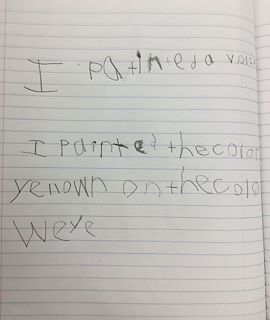 I patinted a
I painted the color
yellown on the color
weye